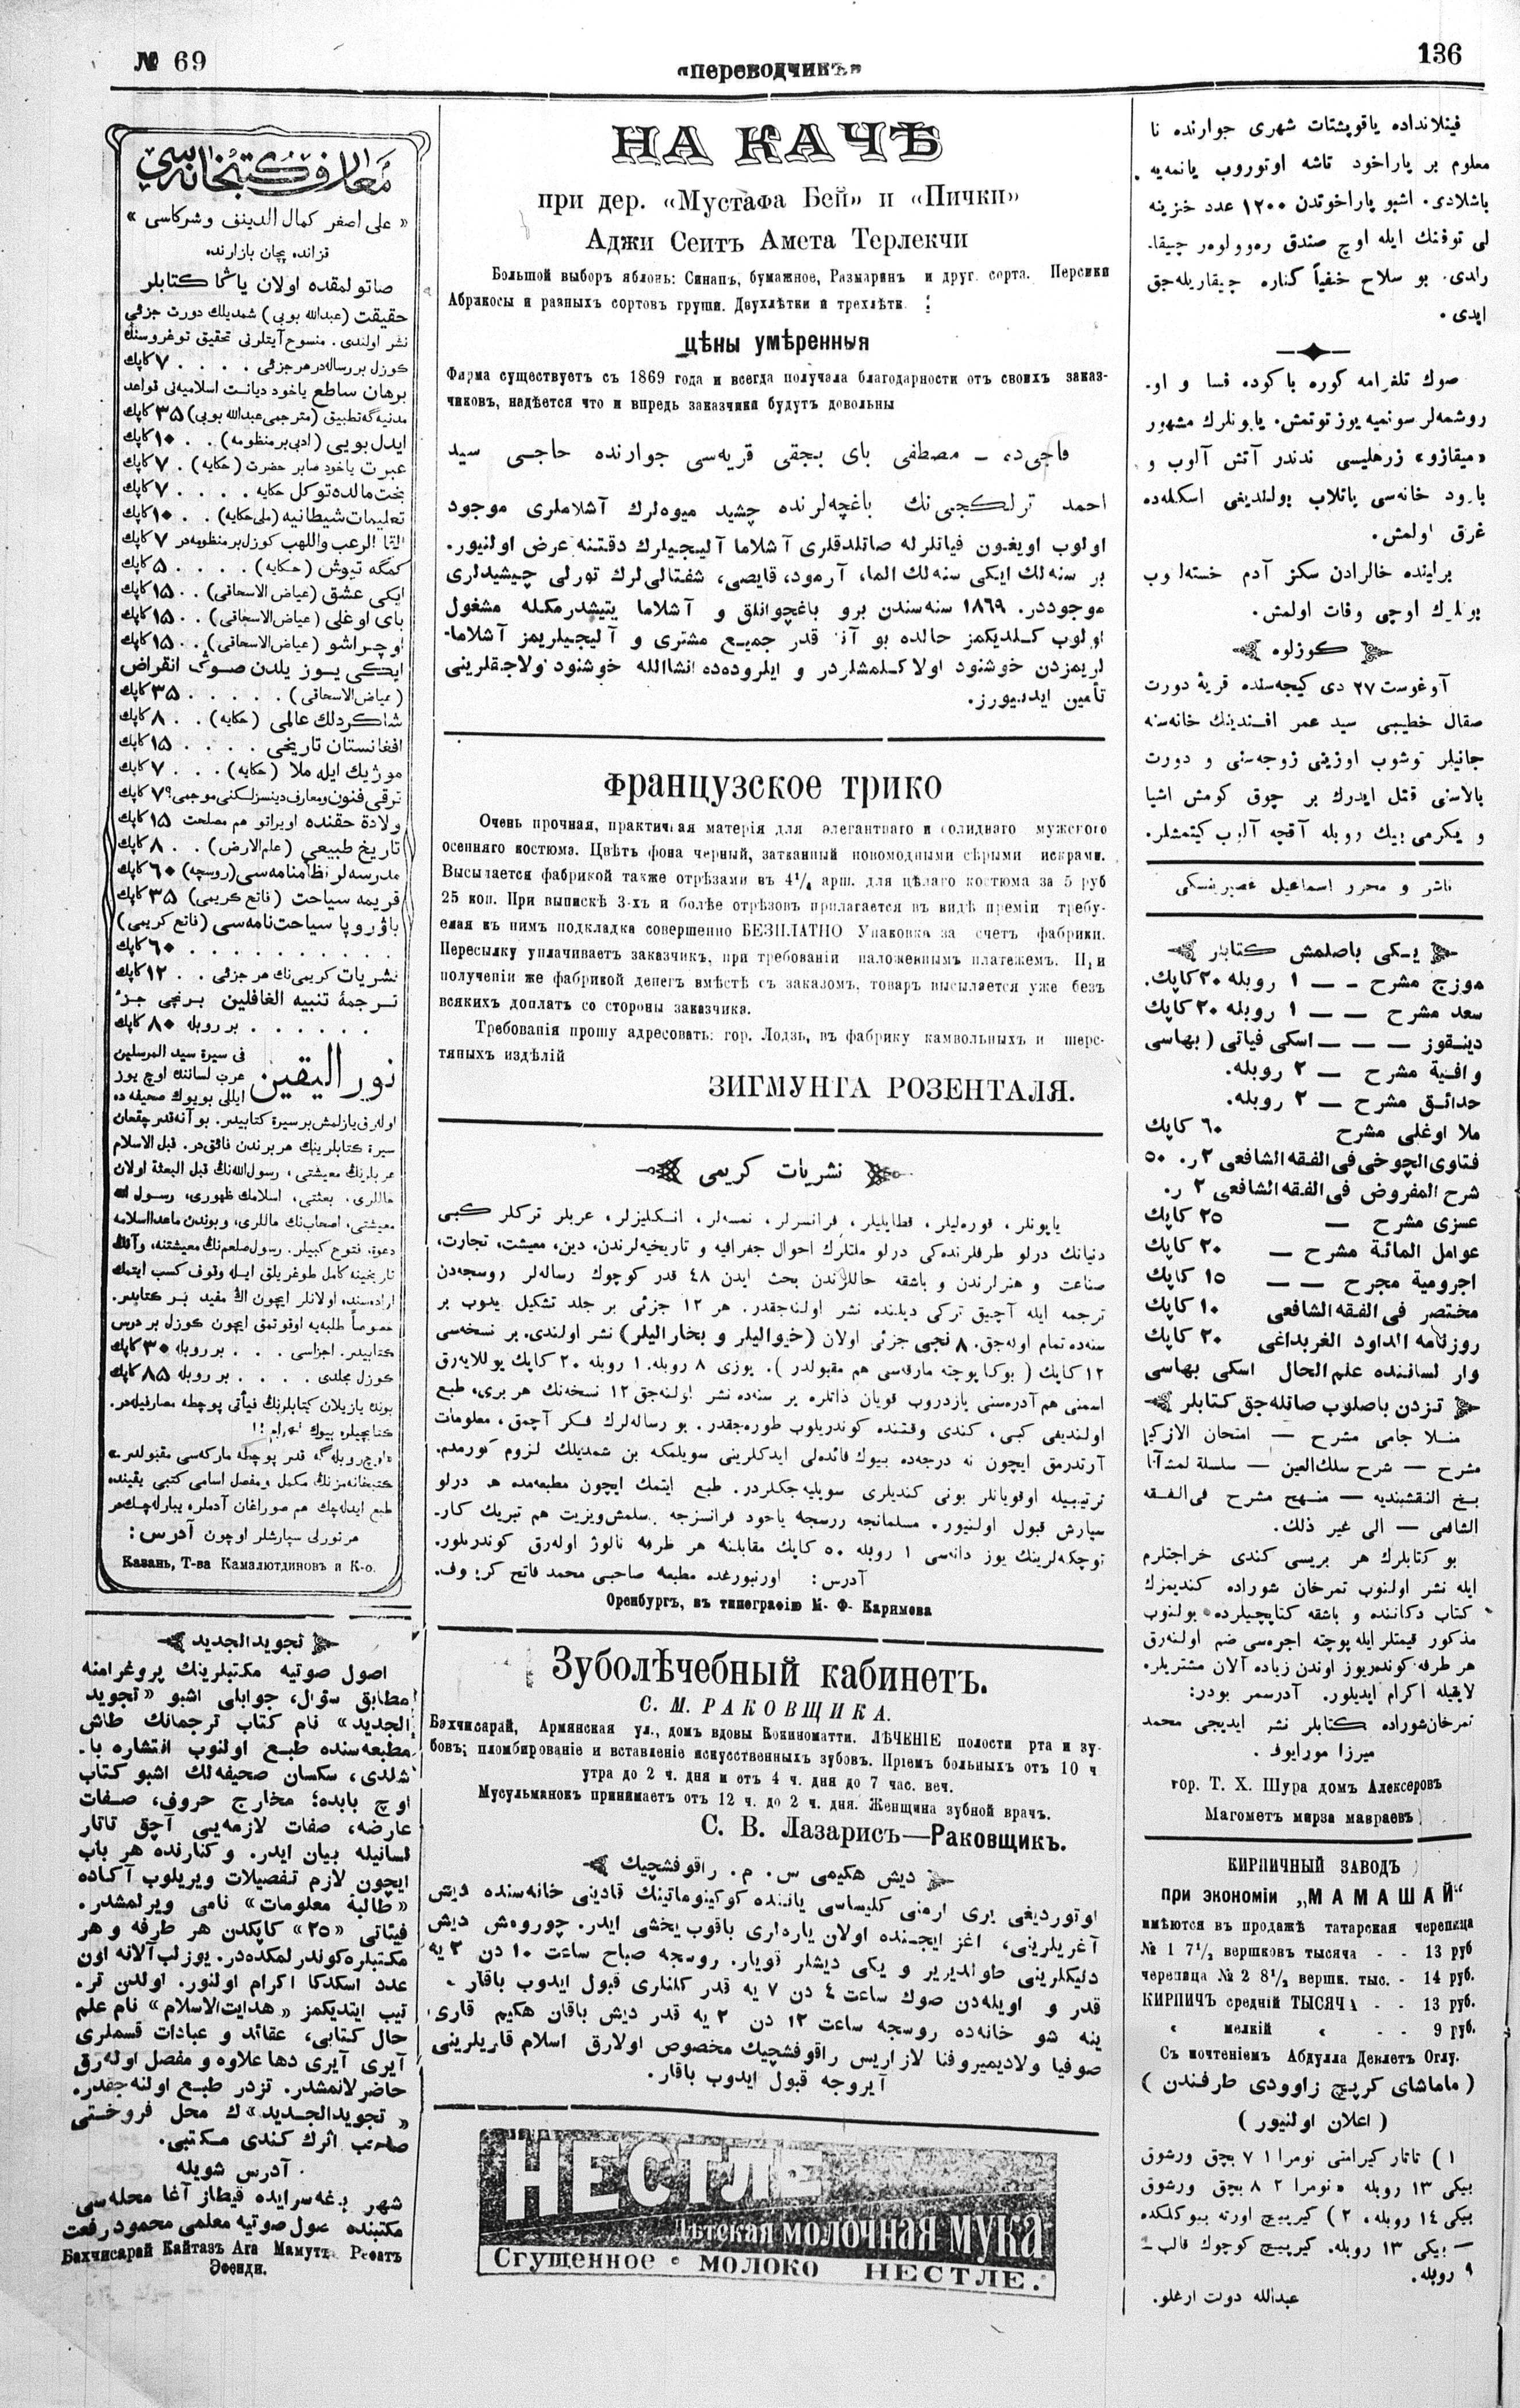 № 69
«Переводчикъ»
136
فينلانداده ياقوبشتات شهرى جوارنده نا
معلوم بر پاراخود تاشه اوتوروب يانمه‌يه
باشلادى. اشبو پاراخوتدن ١٢٠٠ عدد خزينه
لى توفنك ايله اوچ صندق ره‌وولوهر چيقا.
رلدى. بو سلاح خفياً كناره چيقاريله‌جق
ايدى.
صوك تلغرامه كوره باكوده فسا و او.
روشمه‌لر سونميه يوز توتمش. ياپونلرك مشهور
«ميقازو» زرهليسى ندندر آتش آلوب و
بارود خانه‌سى پاتلاب بولنديغى اسكله‌ده
غرق اولمش.
يونلرك اوچى وفات اولمش.
كوزلوه
آوغوست ٢٧ دى كيجه‌سنده قريهٔ دورت
صقال خطيبى سيد عمر افندينك خانه‌سنه
جانيلر توشوب اوزينى زوجه‌سنى و دورت
بالاسنى قتل ايدرك بر چوق كومش اشيا
و يكرمى بيك روبله آقچه آلوب كيتمشلر.
ناشر و محرر اسماعيل غصپرينسكى
يكى باصلمش كتابلر
موزج مشرح — — ١ روبله ٢٠ كاپك.
سعد مشرح — — ١ روبله ٢٠ كاپك
دينقوز — — — اسكى فياتى (بهاسى
وافية مشرح — ٢ روبله.
حدائق مشرح — ٢ روبله.
ملا اوغلى مشرح ٦٠ كاپك
فتاوى الچوخى فى الفقه الشافعى ٢ ر. ٥٠
شرح المفروض فى الفقه الشافعى ٢ ر.
عزى مشرح — ٢٥ كاپك
عوامل المائة مشرح — ٢٠ كاپك
اجرومية مجرح — — ١٥ كاپك
مختصر فى الفقه الشافعى ١٠ كاپك
روزنامه الداود الغربداغى ٢٠ كاپك
وار لساننده علم الحال اسكى بهاسى
تزدن باصلوب صاتله‌جق كتابلر
منلا جامى مشرح — امتحان الازكيا
مشرح — شرح سلك العين — سلسلة لمشآئا
يخ النقشبنديه — منهج مشرح فى الفقه
الشافعى — الى غير ذلك.
بو كتابلرك هر بريسى كندى خراجتلرم
ايله نشر اولنوب تمرخان شوراده كنديمزك
كتاب دكاننده و باشقه كتابچيلرده بولنوب
مذكور قيمتلر ايله پوچته اجره‌سى ضم اولنه‌رق
هر طرفه كوندريوز اوندن زياده آلان مشتريلر.
لايقيله اكرام ايديلور. آدرسمز بودر:
تمرخان شوراده كتابلر نشر ايديجى محمد
ميرزا مورايوف.
гор. Т. Х. Шура домъ Алексеровъ
Магометъ мирза мавраевъ
КИРПИЧНЫЙ ЗАВОДЪ
при экономіи „МАМАШАЙ“
имѣются въ продажѣ татарская черепица
№ 1 7¹/₂ вершковъ тысяча - - 13 руб
черепица № 2 8¹/₂ вершк. тыс. - 14 руб.
КИРПИЧЪ средній ТЫСЯЧА - - 13 руб.
« мелкій « - - 9 руб.
Съ почтеніемъ Абдулла Девлетъ Оглу.
(ماماشاى كرپيچ زاوودى طرفندن)
(اعلان اولنيور)
١) تاتار كيرامتى نومرا ١ ٧ بچق ورشوق
بيكى ١٣ روبله «نومرا ٢ ٨ بچق ورشوق
بيكى ١٤ روبله. ٢) كيرپيچ اورته بيوكلكده
— بيكى ١٣ روبله. كيرپيچ كوچوك قالب —
٩ روبله.
عبدالله دولت ارغلو.
НА КАЧѢ
при дер. «Мустафа Бей» и «Пички»
Аджи Сеитъ Амета Терлекчи
Большой выборъ яблонь: Синапъ, бумажное, Размаринъ и друг. сорта. Персики
Абрикосы и разныхъ сортовъ груши. Двухлѣтки и трехлѣтк.
цѣны умѣренныя
Фирма существуетъ съ 1869 года и всегда получала благодарности отъ своихъ заказ-
чиковъ, надѣется что и впредь заказчики будутъ довольны
قاچى‌ده — مصطفى باى بچقى قريه‌سى جوارنده حاجى سيد
احمد ترلكچى‌نك باغچه‌لرنده چشيد ميوه‌لرك آشلاملرى موجود
اولوب اويغون فياتلرله صاتلدقلرى آشلاما آليجيلرك دقتنه عرض اولنيور.
بر سنه‌لك ايكى سنه‌لك الما، آرمود، قايصى، شفتالى‌لرك تورلى چيشيدلرى
موجوددر. ١٨٦٩ سنه‌سندن برو باغچوانلق و آشلاما يتيشدرمكله مشغول
اولوب كلديكمز حالده بو آنه قدر جميع مشترى و آليجيلريمز آشلاما-
لريمزدن خوشنود اولا كلمشلردر و ايلروده‌ده انشاالله خوشنود ولاجقلرينى
تأمين ايديورز.
Французское трико
Очень прочная, практичная матерія для элегантнаго и солиднаго мужского
осенняго костюма. Цвѣтъ фона черный, затканный новомодными сѣрыми искрами.
Высылается фабрикой также отрѣзами въ 4¹/₄ арш. для цѣлаго костюма за 5 руб
25 коп. При выпискѣ 3-хъ и болѣе отрѣзовъ прилагается въ видѣ преміи требу-
емая къ нимъ подкладка совершенно БЕЗПЛАТНО Упаковка за счетъ фабрики.
Пересылку уплачиваетъ заказчикъ, при требованіи наложеннымъ платежемъ. При
полученіи же фабрикой денегъ вмѣстѣ съ заказомъ, товаръ высылается уже безъ
всякихъ доплатъ со стороны заказчика.
Требованія прошу адресовать: гор. Лодзь, въ фабрику камвольныхъ и шерс-
тяныхъ издѣлій
ЗИГМУНТА РОЗЕНТАЛЯ.
نشريات كريمى
ياپونلر، قوره‌ليلر، قطايليلر، فرانسزلر، نمسه‌لر، انكليزلر، عربلر تركلر كبى
دنيانك درلو طرفلرنده‌كى درلو ملتلرك احوال جغرافيه و تاريخيه‌لرندن، دين، معيشت، تجارت،
صناعت و هنرلرندن و باشقه حاللرندن بحث ايدن ٤٨ قدر كوچوك رساله‌لر روسجه‌دن
ترجمه ايله آچيق تركى ديلنده نشر اولنه‌جقدر. هر ١٢ جزئى بر جلد تشكيل يدوب بر
سنه‌ده تمام اوله‌جق. ٨ نجى جزئى اولان (خيواليلر و بخاراليلر) نشر اولندى. بر نسخه‌سى
١٢ كاپك (بوكا پوچته مارقه‌سى هم مقبولدر). يوزى ٨ روبله. ١ روبله ٢٠ كاپك يوللايه‌رق
اسمنى هم آدره‌سنى يازدروب قويان ذاتلره بر سنه‌ده نشر اولنه‌جق ١٢ نسخه‌نك هر برى، طبع
اولنديغى كبى، كندى وقتنده كوندريلوب طوره‌جقدر. بو رساله‌لرك فكر آچمق، معلومات
آرتدرمق ايچون نه درجه‌ده بيوك فائده‌لى ايدكلرينى سويلمكه بن شمديلك لزوم كورمدم.
ترتيبيله اوقويانلر بونى كنديلرى سويليه‌جكلردر. طبع ايتمك ايچون مطبعه‌مده هر درلو
سپارش قبول اولنيور. مسلمانجه روسجه ياخود فرانسزجه يسلمش ويزيت هم تبريك كار-
توچكه‌لرينك يوز دانه‌سى ١ روبله ٥٠ كاپك مقابلنه هر طرفه نالوژ اوله‌رق كوندريلور.
آدرس: اورنبورغده مطبعه صاحبى محمد فاتح كريموف.
Оренбургъ, въ типографію М. Ф. Каримова
Зуболѣчебный кабинетъ.
С. М. РАКОВЩИКА.
Бахчисарай, Армянская ул., домъ вдовы Кокиноматти. ЛѢЧЕНІЕ полости рта и зу-
бовъ; пломбированіе и вставленіе искусственныхъ зубовъ. Пріемъ больныхъ отъ 10 ч
утра до 2 ч. дня и отъ 4 ч. дня до 7 час. веч.
Мусульманокъ принимаетъ отъ 12 ч. до 2 ч. дня. Женщина зубной врачъ.
С. В. Лазарисъ—Раковщикъ.
ديش هكيمى س. م. راقوفشچيك
اوتورديغى يرى ارمنى كليساسى ياننده كوكينوماتينك قادينى خانه‌سنده ديش
آغريلرينى، اغز ايچنده اولان ياره‌لرى باقوب يخشى ايدر. چوروه‌ش ديش
دليكلرينى طولديرير و يكى ديشلر قويار. روسجه صباح ساعت ١٠ دن ٢ يه
قدر و اويله‌دن صوك ساعت ٤ دن ٧ يه قدر كلنلرى قبول ايدوب باقار.
ينه شو خانه‌ده روسجه ساعت ١٢ دن ٢ يه قدر ديش باقان هكيم قارى
صوفيا ولاديميروفنا لازاريس راقوفشچيك مخصوص اولارق اسلام قاريلرينى
آيروجه قبول ايدوب باقار.
НЕСТЛЕ
Дѣтская молочная мука
Сгущенное • молоко НЕСТЛЕ.
معارف كتبخانه‌سى
«على اصغر كمال الدينف وشركاسى»
قزانده پچان بازارنده
صاتولمقده اولان ياڭا كتابلر
حقيقت (عبدالله بوبى) شمديلك دورت جزئى
نشر اولندى. منسوح آيتلرنى تحقيق توغروسنك
كوزل بر رساله‌در هر جزئى . . . . ٧ كاپك
برهان ساطع ياخود ديانت اسلاميه‌نى قواعد
مدنيه‌گه تطبيق (مترجمى عبدالله بوبى) ٣٥ كاپك
ايدل بويى (ادبى بر منظومه) . . ١٠ كاپك
عبرت ياخود صابر حضرت (حكايه) . ٧ كاپك
بخت مالده توكل حكايه . . . . ٧ كاپك
تعليمات شيطانيه (ملى حكايه) . . ١٠ كاپك
القا الرعب واللهب كوزل بر منظومه‌در ٧ كاپك
كمگه تيوش (حكايه) . . . . ٥ كاپك
ايكى عشق (عياض الاسحاقى) . . ١٥ كاپك
باى اوغلى (عياض الاسحاقى) . . ١٥ كاپك
اوچراشو (عياض الاسحاقى) . . ١٥ كاپك
ايكى يوز يلدن صوڭ انقراض
(عياض الاسحاقى) . . . . . ٣٥ كاپك
شاكردلك عالمى (حكايه) . . ٨ كاپك
افغانستان تاريخى . . . . ١٥ كاپك
موژيك ايله ملا (حكايه) . . . ٧ كاپك
ترقى فنون ومعارف دينسزلكنى موجمى؟ ٧ كاپك
ولادة حقنده اويراتو هم مصلحت ١٥ كاپك
تاريخ طبيعى (علم الارض) . . ٨ كاپك
مدرسه‌لر نظامنامه‌سى (روسچه) ٦٠ كاپك
قريمه سياحت (فاتح كريمى) ٣٥ كاپك
ياوروپا سياحت‌نامه‌سى (فاتح كريمى)
. . . . . . . . . ٦٠ كاپك
نشريات كريمى‌نك هر جزئى . . ١٢ كاپك
ترجمهٔ تنبيه الغافلين برنچى جزؤ
. . . . . . بر روبله ٨٠ كاپك
نور اليقين
فى سيرة سيد المرسلين
عرب لساننك اوچ يوز
ايللى بويوك صحيفه ده
اوله‌رق يازلمش بر سيرة كتابيدر. بو آنه‌قدر چقمان
سيرة كتابلرينك هر برندن فائق‌در. قبل الاسلام
عربلرنك معيشتى، رسول الله‌نك قبل البعثة اولان
حاللرى، بعثتى، اسلامك ظهورى، رسول الله
معيشتى، اصحاب‌نك حاللرى، و بوندن ماعدا اسلامه
دعوة، فتوح كبيلر. رسول صلعم‌نك معيشتنه، وآنك
تاريخينه كامل طوغريلق ايله وقوف كسب ايتمك
اراده‌سنده اولانلر ايچون اڭ مفيد بر كتابدر.
خصوصاً طلبه‌يه اوقوتمق ايچون كوزل بر درس
كتابيدر. اجزاسى . . . بر روبله ٣٠ كاپك
كوزل مجلدى . . . . بر روبله ٨٥ كاپك
بونده يازيلان كتابلرنڭ فيأتى پوچطه مصارفيله‌در.
كتابچيلره بيوك اكرام!!
«اوچ روبله‌گه قدر پوچطه ماركه‌سى مقبولدر.»
كتبخانه‌مزنڭ مكمل و مفصل اسامى كتبى يقينده
طبع ايدله‌چك هم صوراغان آدملره يبارله‌چك‌در
هر تورلى سپارشلر اوچون آدرس:
Казань, Т-ва Камалютдиновъ и К-о.
تجويد الجديد
اصول صوتيه مكتبلرينك پروغرامنه
مطابق سئوال، جوابلى اشبو «تجويد
الجديد» نام كتاب ترجمانك طاش
مطبعه‌سنده طبع اولنوب انتشاره با.
شلدى، سكسان صحيفه‌لك اشبو كتاب
اوچ بابده؛ مخارج حروف، صفات
عارضه، صفات لازمه‌يى آچق تاتار
لسانيله بيان ايدر. و كنارنده هر باب
ايچون لازم تفصيلات ويريلوب آكاده
«طالبهٔ معلومات» نامى ويرلمشدر.
فيئاتى «٢٥» كاپكدن هر طرفه و هر
مكتبلره كوندرلمكده‌در. يوزلب آلانه اون
عدد اسكدكا اكرام اولنور. اولدن تر.
تيب ايتديكمز «هدايت الاسلام» نام علم
حال كتابى، عقائد و عبادات قسملرى
آيرى آيرى دها علاوه و مفصل اوله‌رق
حاضرلانمشدر. تزدر طبع اولنه‌جقدر.
«تجويد الجديد» ك محل فروختى
صاحب اثرك كندى مكتبى.
آدرس شويله
شهر بغچه‌سرايده قيطاز آغا محله‌سى
مكتبنده اصول صوتيه معلمى محمود رفعت
Бахчисарай Кайтазъ Ага Мамутъ Рефатъ
Эфенди.